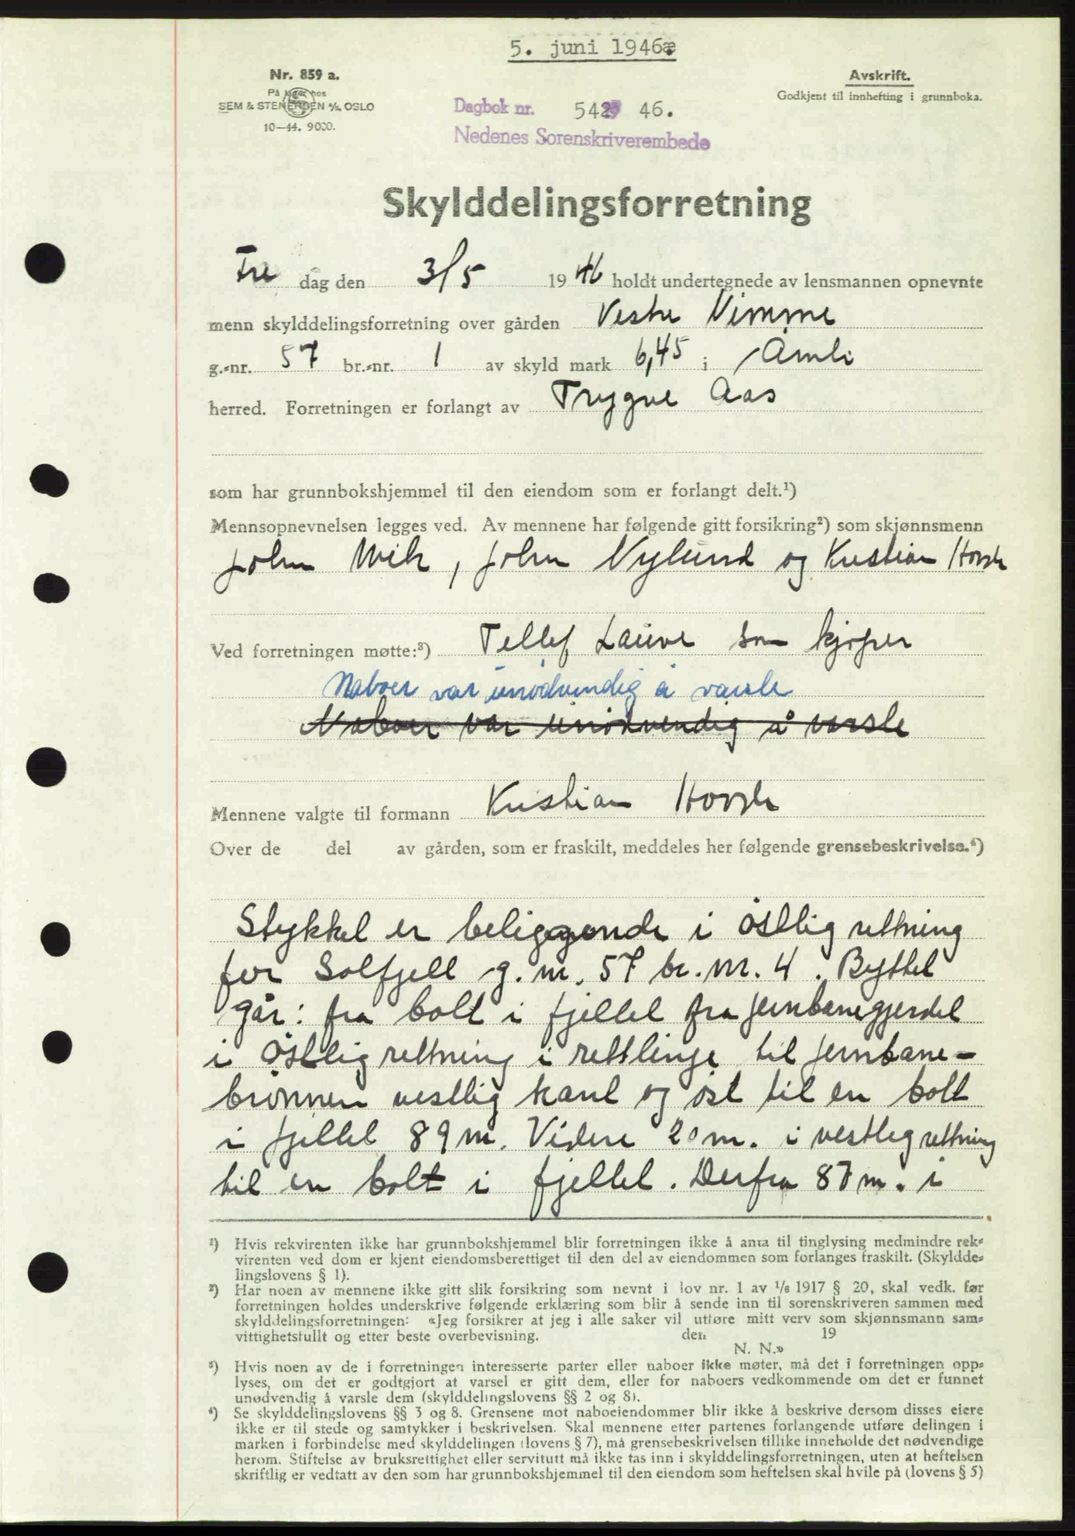 5. juni 1946
Nr. 859 a.
På lager hos
SEM & STENERSEN A/S OSLO
10—44. 9000.
Avskrift.
Godkjent til innhefting i grunnboka.
Dagbok nr. 542 46.
Nedenes Sorenskriverembede
Skylddelingsforretning
Fre dag den 3/5 1946 holdt undertegnede av lensmannen opnevnte
menn skylddelingsforretning over gården Vestre Nimme
g.-nr. 57 br.-nr. 1 av skyld mark 6,45 i Åmli
herred. Forretningen er forlangt av Trygve Aas
som har grunnbokshjemmel til den eiendom som er forlangt delt.¹)
Mennsopnevnelsen legges ved. Av mennene har følgende gitt forsikring²) som skjønnsmenn
John Wik, John Nylund og Kristian Hovde
Ved forretningen møtte:³) Tellef Lauve som kjøper
Naboer var unødvendig å varsle
Naboer var unødvendig å varsle
Mennene valgte til formann Kristian Hovde
Over de del av gården, som er fraskilt, meddeles her følgende grensebeskrivelse.⁴)
Stykket er beliggende i østlig rettning
for Solfjell g.nr. 57 br.nr. 4. Byttet
går: fra bolt i fjellet fra jernbanegjerdet
i østlig rettning i rettlinje til jernbane-
brønnen vestlig kant og øst til en bolt
i fjellet 89 m. Videre 20 m. i vestleg rettning
til en bolt i fjellet. Derfra 87 m. i
¹) Hvis rekvirenten ikke har grunnbokshjemmel blir forretningen ikke å anta til tinglysing medmindre rek-
virenten ved dom er kjent eiendomsberettiget til den del av eiendommen som forlanges fraskilt. (Skyldde-
lingslovens § 1).
²) Har noen av mennene ikke gitt slik forsikring som nevnt i lov nr. 1 av 1/6 1917 § 20, skal vedk. før
forretningen holdes underskrive følgende erklæring som blir å sende inn til sorenskriveren sammen med
skylddelingsforretningen: «Jeg forsikrer at jeg i alle saker vil utføre mitt verv som skjønnsmann sam-
vittighetsfullt og etter beste overbevisning. den 19
N. N.»
³) Hvis noen av de i forretningen interesserte parter eller naboer ikke møter, må det i forretningen opp-
lyses, om det er godtgjort at varsel er gitt dem, eller for naboers vedkommende om det er funnet
unødvendig å varsle dem (skylddelingslovens §§ 2 og 8).
⁴) Se skylddelingslovens §§ 3 og 8. Grensene mot naboeiendommer blir ikke å beskrive dersom disses eiere
ikke er til stede og samtykker i beskrivelsen. Skal mennene etter partenes forlangende utføre delingen i
marken i forbindelse med skylddelingen (lovens § 7), må grensebeskrivelsen tillike inneholde det nødvendige
herom. Stiftelse av bruksrettighet eller servitutt må ikke tas inn i skylddelingsforretningen, uten at heftelsen
skriftlig er vedtatt av den som har grunnbokshjemmel til den eiendom som heftelsen skal hvile på (lovens § 5)